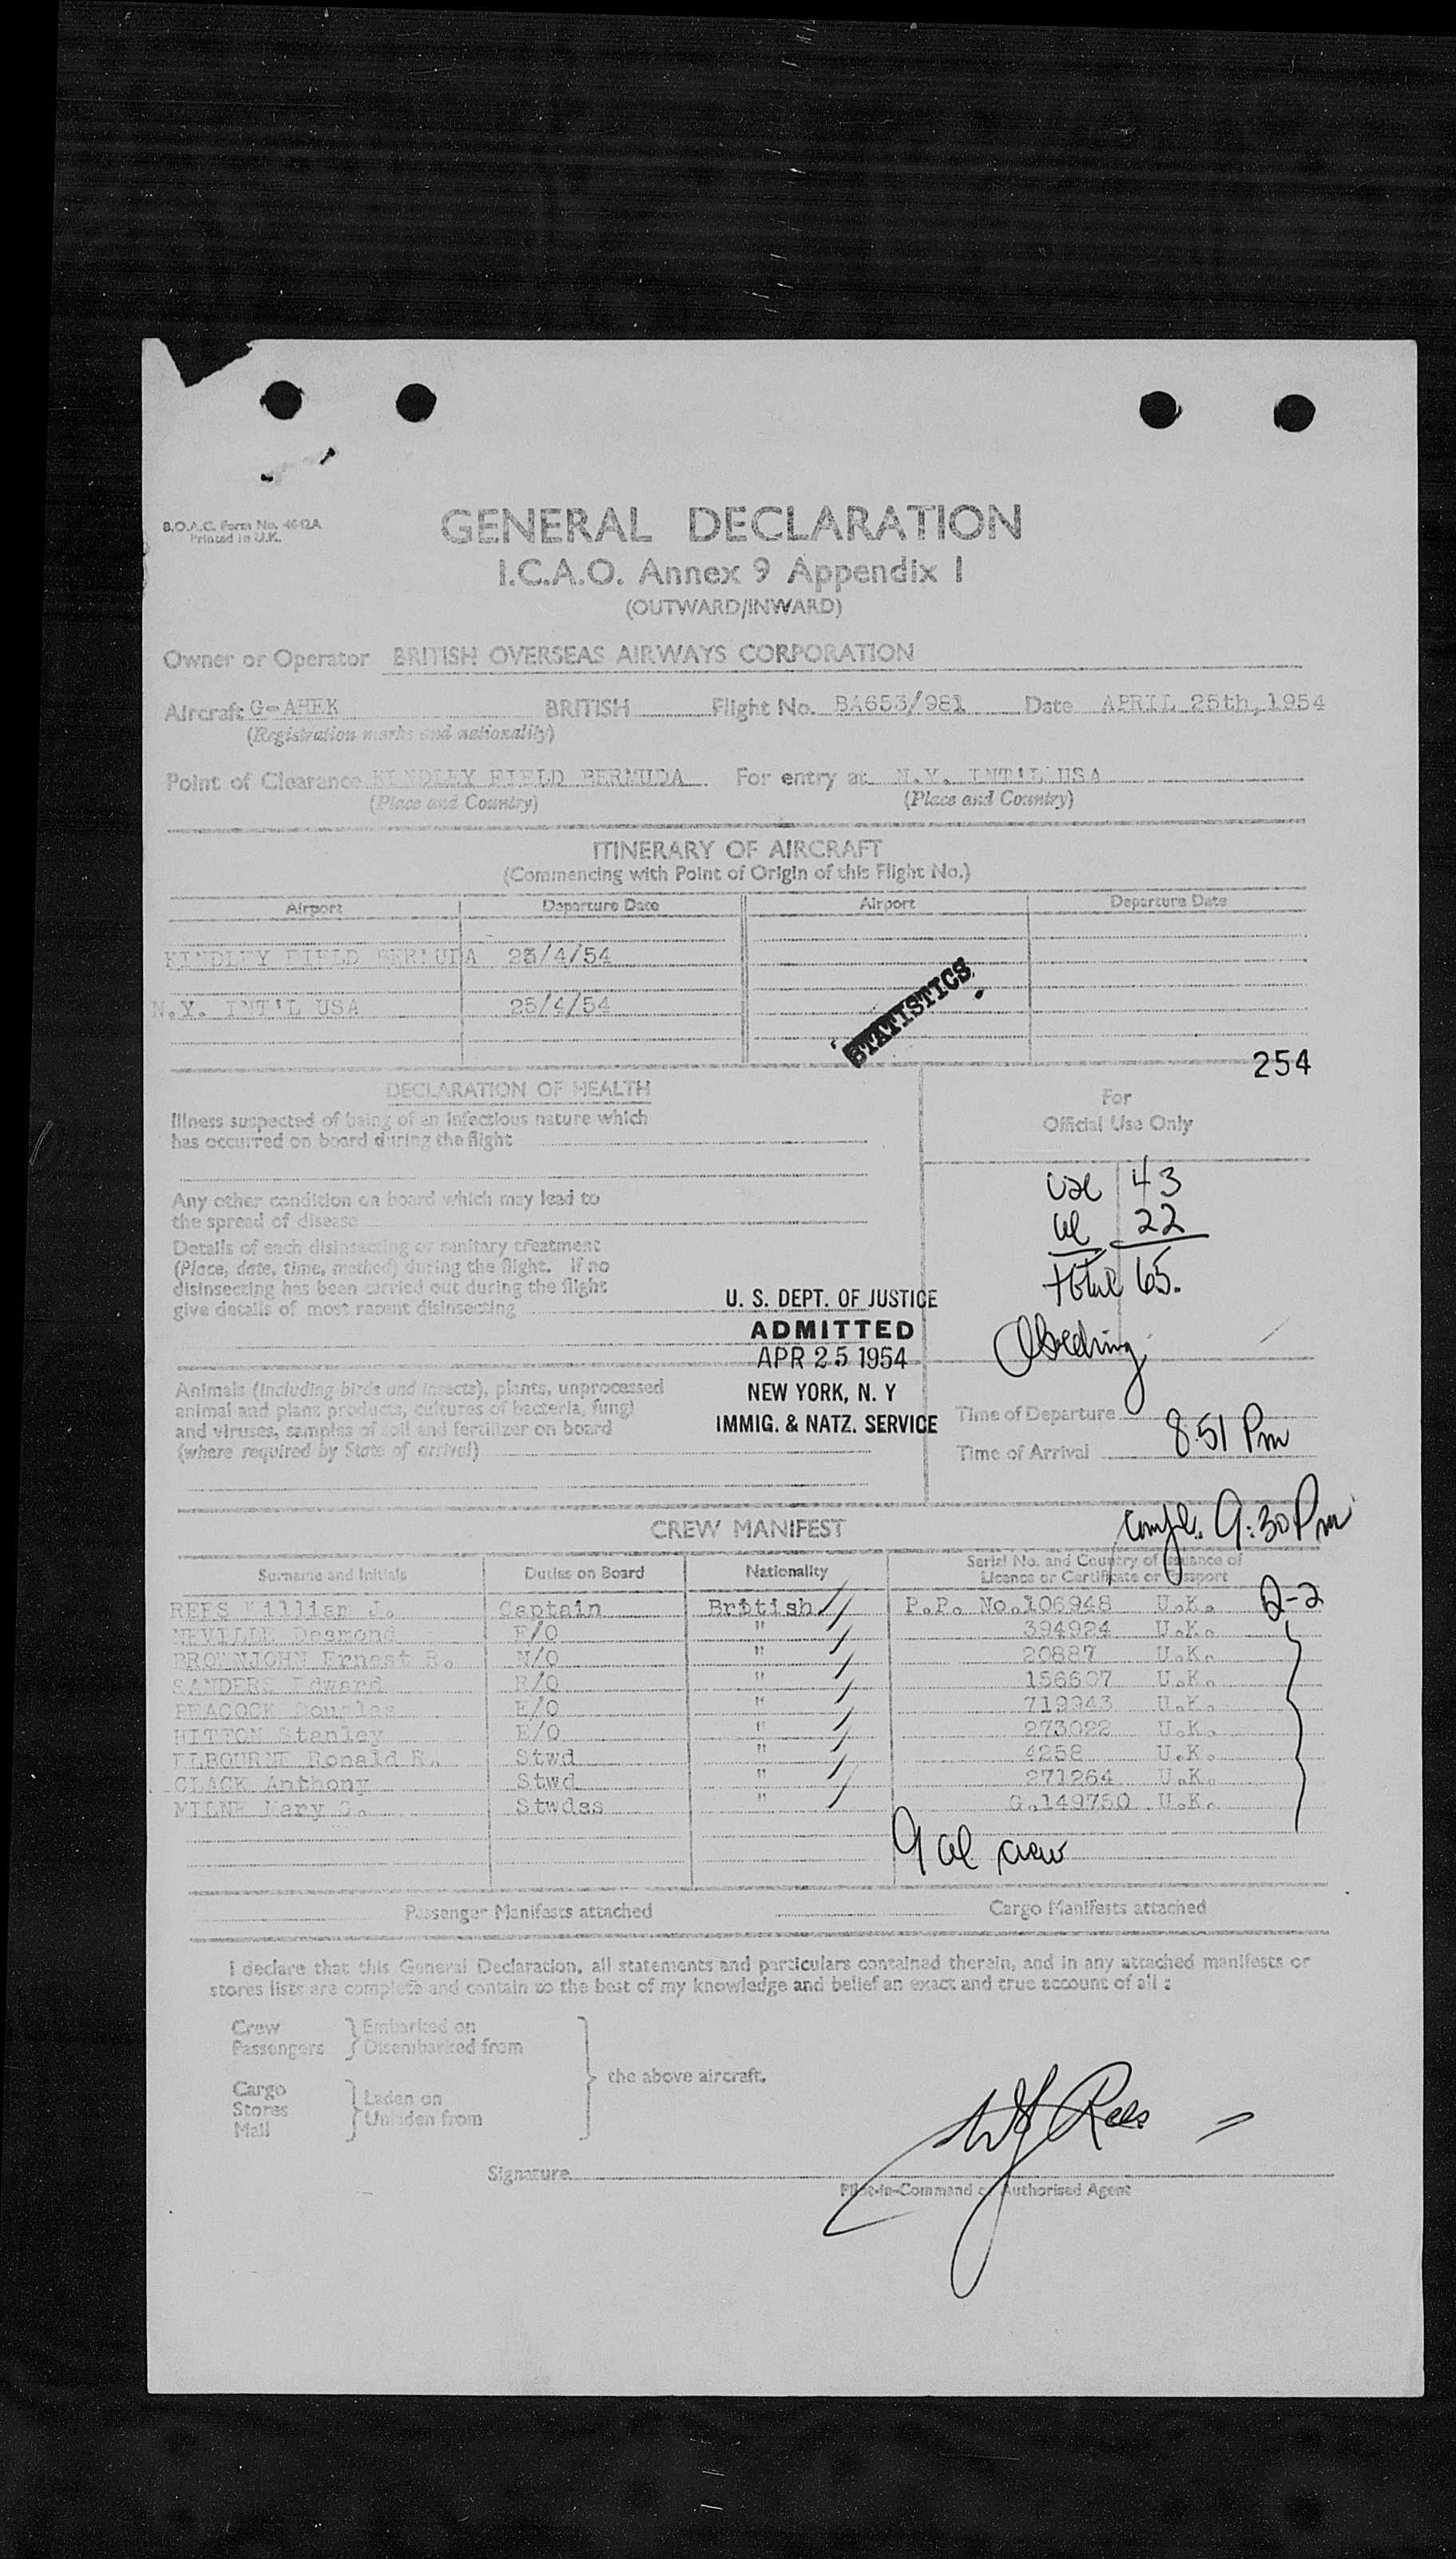 B.O.A.C. Form No. 4642A
Printed in U.K.
GENERAL DECLARATION
I.C.A.O. Annex 9 Appendix I
(OUTWARD/INWARD)
Owner or Operator BRITISH OVERSEAS AIRWAYS CORPORATION
Aircraft G-AHEK BRITISH Flight No. BA653/981 Date APRIL 25th, 1954
(Registration marks and nationality)
Point of Clearance KINDLEY FIELD BERMUDA For entry at N.Y. INT'L USA
(Place and Country) (Place and Country)
ITINERARY OF AIRCRAFT
(Commencing with Point of Origin of this Flight No.)
Airport Departure Date Airport Departure Date
KINDLEY FIELD BERMUDA 25/4/54
N.Y. INT'L USA 25/4/54
STATISTICS
254
DECLARATION OF HEALTH
For
Official Use Only
Illness suspected of being of an infectious nature which
has occurred on board during the flight
Any other condition on board which may lead to
the spread of disease
Details of each disinsecting or sanitary treatment
(Place, date, time, method) during the flight. If no
disinsecting has been carried out during the flight
give details of most recent disinsecting
43
22
total 65.
U. S. DEPT. OF JUSTICE
ADMITTED
APR 25 1954
NEW YORK, N. Y
IMMIG. & NATZ. SERVICE
Animals (including birds and insects), plants, unprocessed
animal and plant products, cultures of bacteria, fungi
and viruses, samples of soil and fertilizer on board
(where required by State of arrival)
Time of Departure
Time of Arrival 8:51 Pm
compl. 9:30 Pm
CREW MANIFEST
Surname and Initials Duties on Board Nationality Serial No. and Country of Issuance of
Licence or Certificate or Passport
REES William J. Captain British P.P. No.106948 U.K. D-2
NEVILLE Desmond F/O " 394924 U.K.
BROWNJOHN Ernest R. N/O " 20887 U.K.
SANDERS Edward R/O " 156607 U.K.
PEACOCK Douglas E/O " 719943 U.K.
HITTON Stanley E/O " 273022 U.K.
ELBOURNE Ronald R. Stwd " 4258 U.K.
CLACK Anthony Stwd " 271264 U.K.
MILNE Mary G. Stwdss " G.149750 U.K.
9 al crew
Passenger Manifests attached Cargo Manifests attached
I declare that this General Declaration, all statements and particulars contained therein, and in any attached manifests or
stores lists are complete and contain to the best of my knowledge and belief an exact and true account of all :
Crew Embarked on
Passengers Disembarked from
the above aircraft.
Cargo Laden on
Stores
Mail Unladen from
WJ Rees
Signature
Pilot-in-Command or Authorised Agent